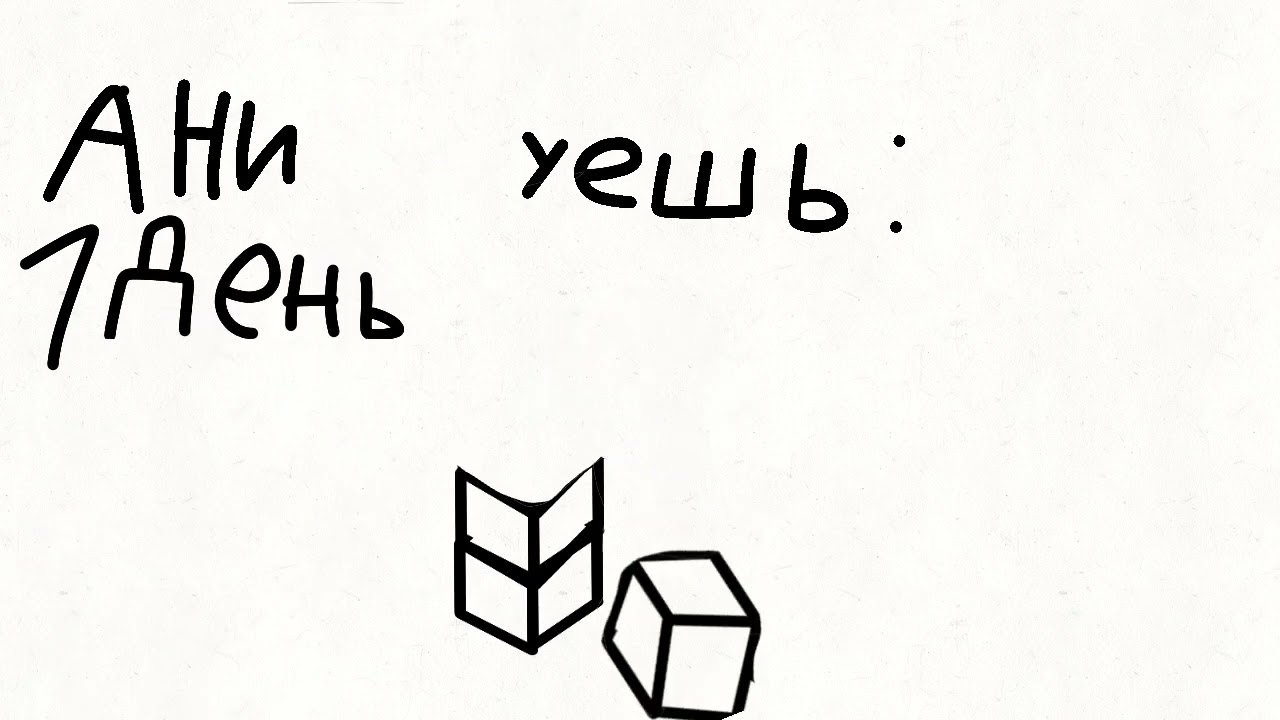 Ани уешь:
1 день